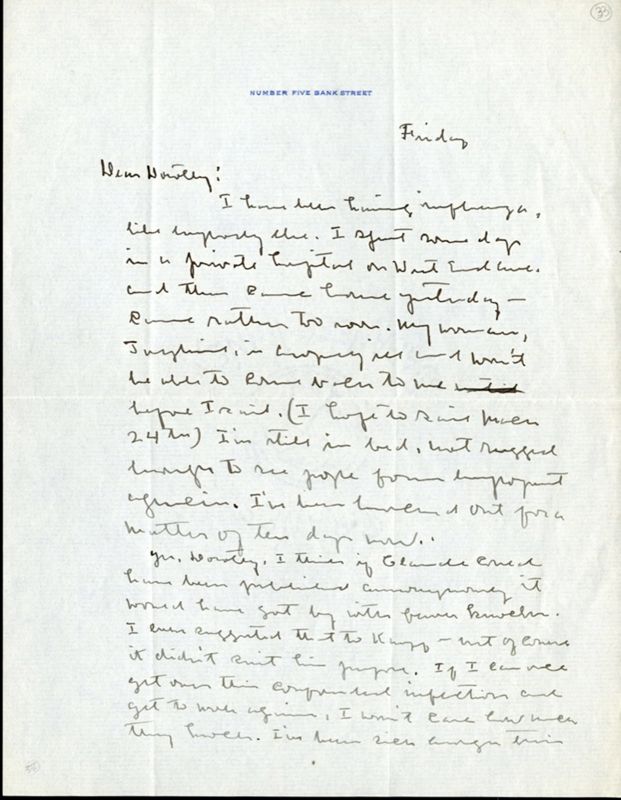 33
NUMBER FIVE BANK STREET
Friday
Dear Dorothy:
I have been having influenza,
like everybody else. I spent some days
in a private hospital on West End Ave.
and then came home yesterday —
came rather too soon. My woman,
Josephine, is ill and won't
be able to come to me
before I sail. (I hope to sail March
24th) I'm still in bed, not rugged
enough to see people from
again. I've been knocked out for a
matter of ten days now.
Yes, Dorothy, I think if Claude could
have been published anonymously it
would have got by with fewer knocks.
I even suggested that to Knopf — but of course
it didn't suit his purpose. If I can once
get over this confounded infection and
get to work again, I won't care how much
they knock. I've been sick enough this